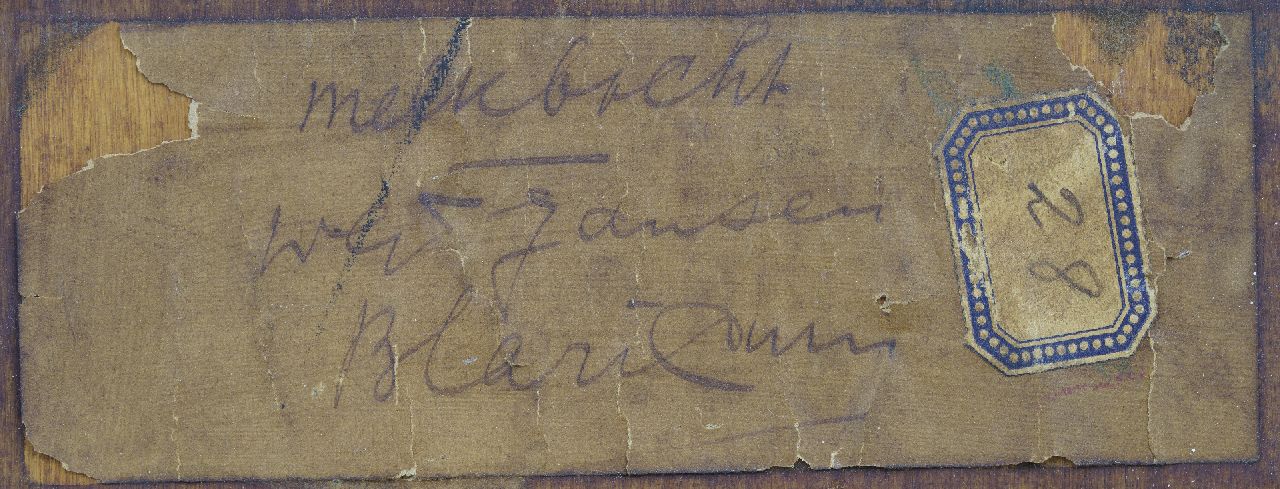 melkbocht
W G F Jansen
Blaricum
28